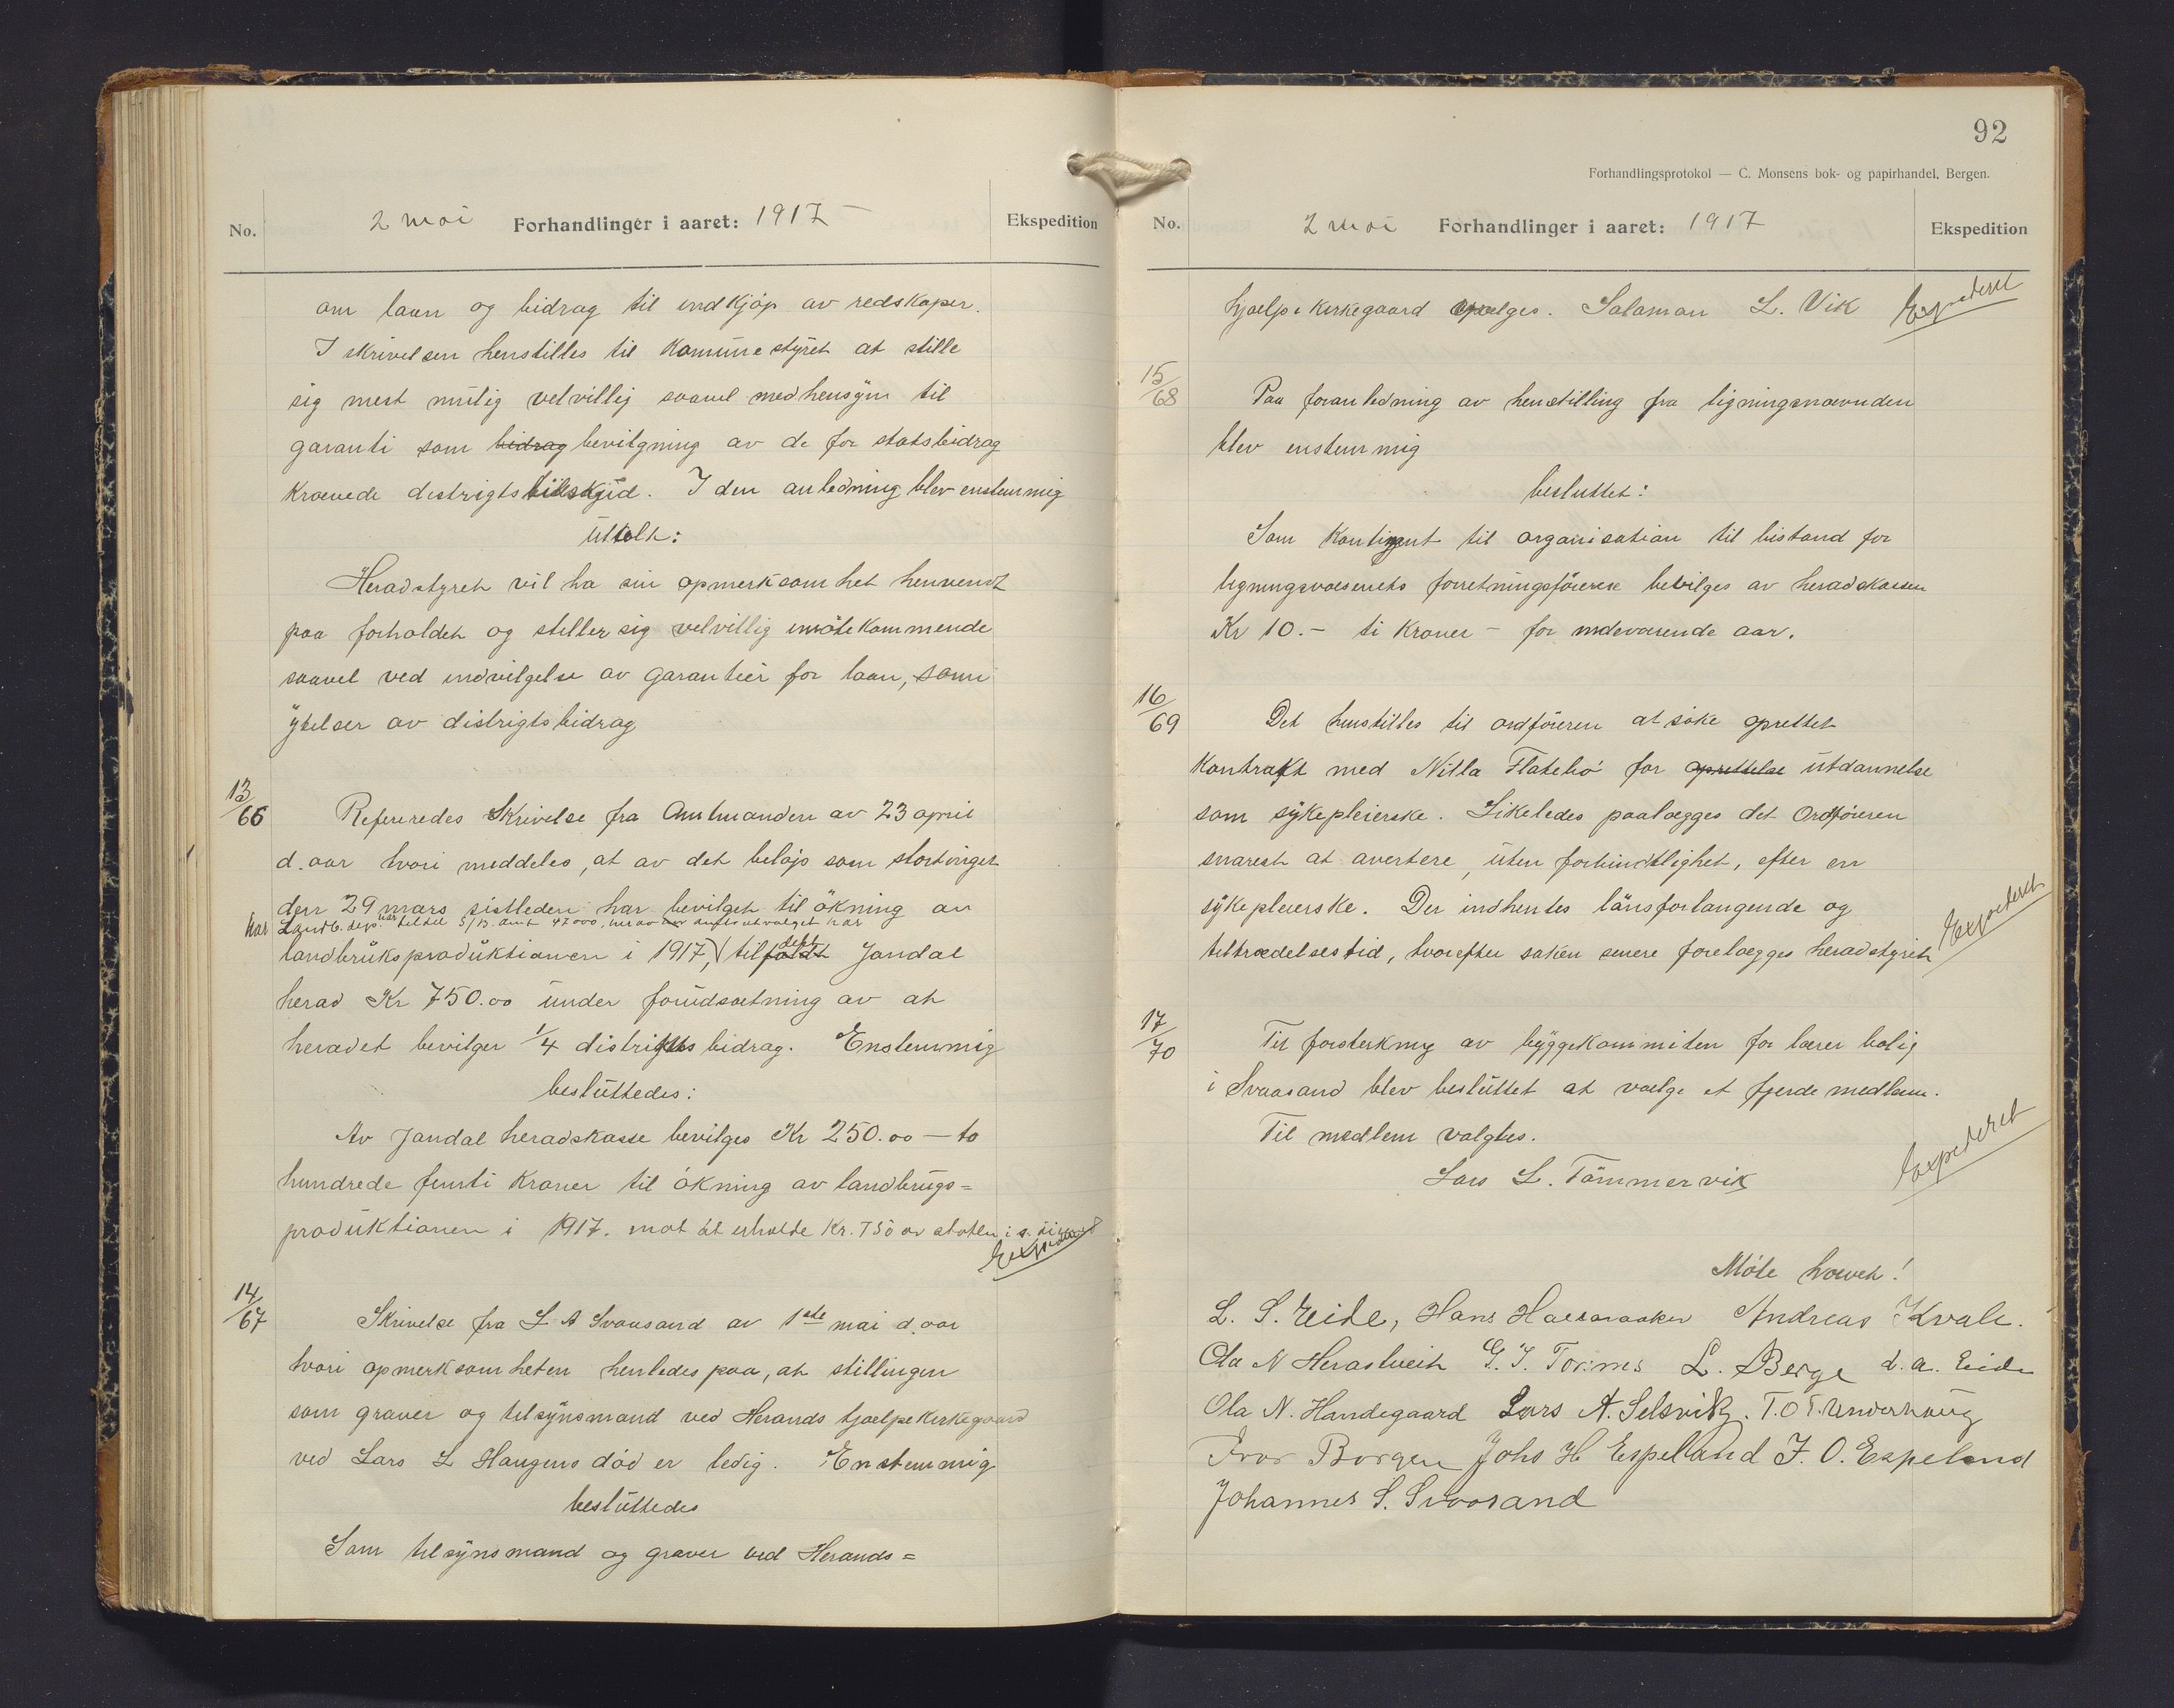 No. 2 mai Forhandlinger i aaret: 1917 — Ekspedition
om laan og bidrag til indkjöp av redskaper.
I skrivelsen henstilles til Komunestyret at stille
sig mest mulig velvillig saavel med hensyn til
garanti som bidrag bevilgning av de for statsbidrag
Krævede distrigtstilskud. I den anledning blev enstemmig
uttalt:
Heradstyret vil ha sin opmerksomhet henvendt
paa forholdet og stiller sig velvillig imötekommende
saavel ved indvilgelse av garantier for laan, som
ytelser av distrigtsbidrag
13/66 Refereredes Skrivelse fra Amtmanden av 23 april
d. aar hvori meddeles, at av det belöp som stortinget
den 29 mars sistleden har bevilget til ökning av
har Landb. dep. har tildel S/B. amt 47000, herav har amtsutvalget har
landbruksproduktionen i 1917, tilfaldt delt Jondal
herad Kr 750.00 under forudsætning av at
heradet bevilger 1/4 distrikts bidrag. Enstemmig
besluttedes:
Av Jondal heradskasse bevilges Kr 250.00 — to
hundrede femti Kroner til ökning av landbrugs=
produktionen i 1917. mot at erholde Kr. 750 av staten i s. öi.
Expederet
14/67 Skrivelse fra L A Svaasand av 1ste mai d. aar
hvori opmerksomheten henledes paa, at stillingen
som graver og tilsynsmand ved Herands hjælpekirkegaard
ved Lars L Haugens död er ledig. Enstemmig
besluttedes
Som tilsynsmand og graver ved Herands=
92
Forhandlingsprotokol — C. Monsens bok- og papirhandel, Bergen.
No. 2 mai Forhandlinger i aaret: 1917 Ekspedition
hjælpekirkegaard vælges. Salamon L. Vik Expederet
15/68 Paa foranledning av henstilling fra ligningsnævnden
blev enstemmig
besluttet:
Som Kontingent til organisation til bistand for
ligningsvæsenets forretningsförere bevilges av heradskassen
Kr 10.— ti Kroner — for indeværende aar.
16/69 Det henstilles til ordföreren at söke oprettet
Kontrakt med Nilla Flatebö for oprettelse utdannelse
som sykepleierske. Likeledes paalægges det Ordföreren
snarest at avertere, uten forbindtlighet, efter en
sykepleierske. Der indhentes lönsforlangende og
tiltrædelsestid, hvorefter saken senere forelægges heradstyret
Expederet
17/70 Til forsterkning av byggekommiteen for lærerbolig
i Svaasand blev besluttet at vælge et fjerde medlem.
Til medlem valgtes.
Lars L. Tömmervik
Expederet
Möte hævet!
L. S. Eide, Hans Haaraaker Andreas Kvale.
Ola N Herastveit G. J. Torsnes L. Berge d. a. Eide
Ola N. Handegaard Lars A. Selsvik. T. O T. Underhaug
Ivar Borgen Johs H Espelland J. O. Espeland
Johannes S. Svaasand